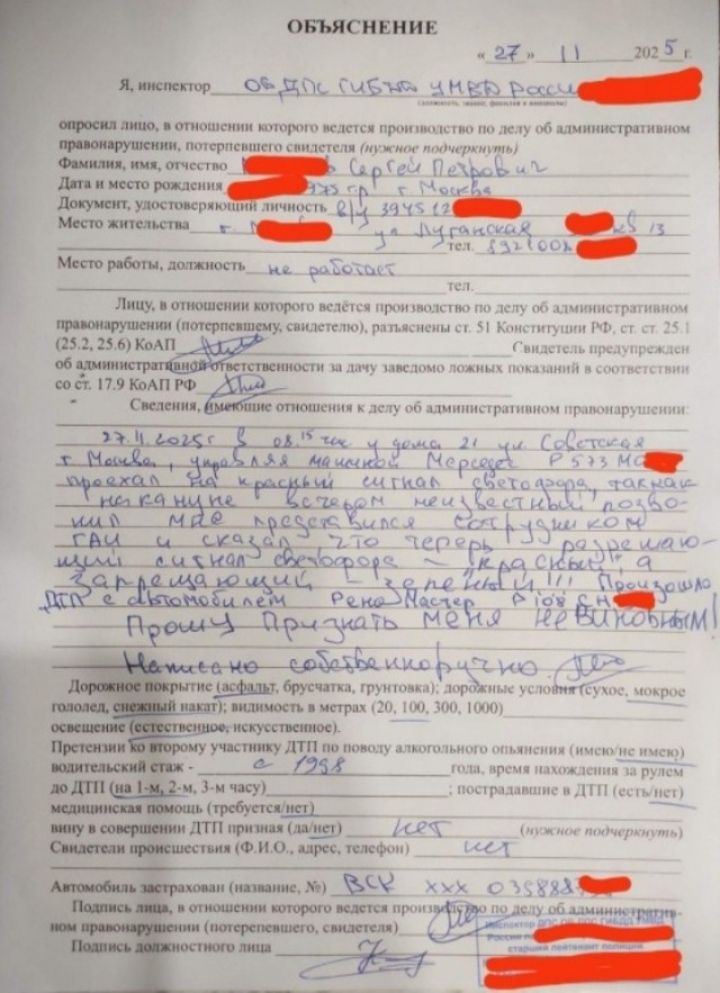 ОБЪЯСНЕНИЕ
« 27 » 11 2025 г.
Я, инспектор ОБ ДПС ГИБДД УМВД России
(должность, звание, фамилия и инициалы)
опросил лицо, в отношении которого ведется производство по делу об административном
правонарушении, потерпевшего свидетеля (нужное подчеркнуть)
Фамилия, имя, отчество Сергей Петрович
Дата и место рождения 975 гр г. Москва
Документ, удостоверяющий личность в/у 394512
Место жительства г. ул Луганская кв 13
тел.
Место работы, должность не работает
тел.
Лицу, в отношении которого ведётся производство по делу об административном
правонарушении (потерпевшему, свидетелю), разъяснены ст. 51 Конституции РФ, ст. ст. 25.1
(25.2, 25.6) КоАП Свидетель предупрежден
об административной ответственности за дачу заведомо ложных показаний в соответствии
со ст. 17.9 КоАП РФ
Сведения, имеющие отношения к делу об административном правонарушении:
27.11.2025г в 08.15 час у дома 21 ул. Советская
г. Москва, управляя машиной Мерседес Р 573 М
проехал на красный сигнал светофора, так как
накануне вечером неизвестный позво-
нил мне представился сотрудником
ГАИ и сказал что теперь разрешаю-
щий сигнал светофора – "красный", а
запрещающий – зеленый!!! Произошло
ДТП с автомобилем Рено Мастер Р 108 СН
Прошу признать меня невиновным!
Написано собственноручно.
Дорожное покрытие (асфальт, брусчатка, грунтовка); дорожные условия (сухое, мокрое
гололед, снежный накат); видимость в метрах (20, 100, 300, 1000)
освещение (естественное, искусственное).
Претензии ко второму участнику ДТП по поводу алкогольного опьянения (имею/не имею)
водительский стаж - с 1998 года, время нахождения за рулем
до ДТП (на 1-м, 2-м, 3-м часу) ; пострадавшие в ДТП (есть/нет)
медицинская помощь (требуется/нет)
вину в совершении ДТП призная (да/нет) нет (нужное подчеркнуть)
Свидетели происшествия (Ф.И.О., адрес, телефон) нет
Автомобиль застрахован (название, №) ВСК ххх 035888
Подпись лица, в отношении которого ведется производство по делу об административ-
ном правонарушении (потерпевшего, свидетеля)
Подпись должностного лица
Инспектор ДПС ОБ ДПС ГИБДД УМВД
России
старший лейтенант полиции